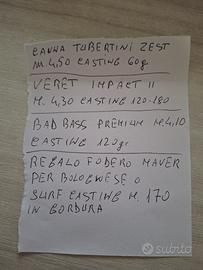 CANNA TUBERTINI ZEST
M. 4,50 CASTING 60g
VERET IMPACT II
M. 4,30 CASTING 120-180
BAD BASS PREMIUM M. 4,10
CASTING 120gr
REGALO FODERO MAVER
PER BOLOGNESE O
SURF CASTING M. 170
IN CORDURA
subito